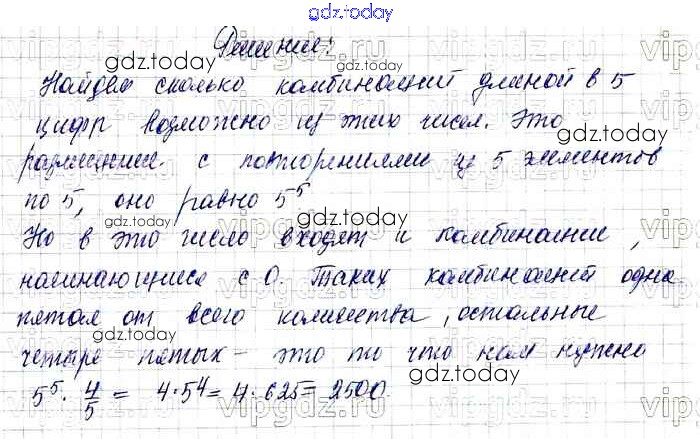 gdz.today
Решение:
Найдем сколько комбинаций длиной в 5
цифр возможно из этих чисел. Это
размещение с повторениями из 5 элементов
по 5, оно равно 5⁵
Но в это число входят и комбинации,
начинающиеся с 0. Таких комбинаций одна
пятая от всего количества, остальные
четыре пятых - это то что нам нужно
5⁵ · 4/5 = 4·5⁴ = 4·625 = 2500.